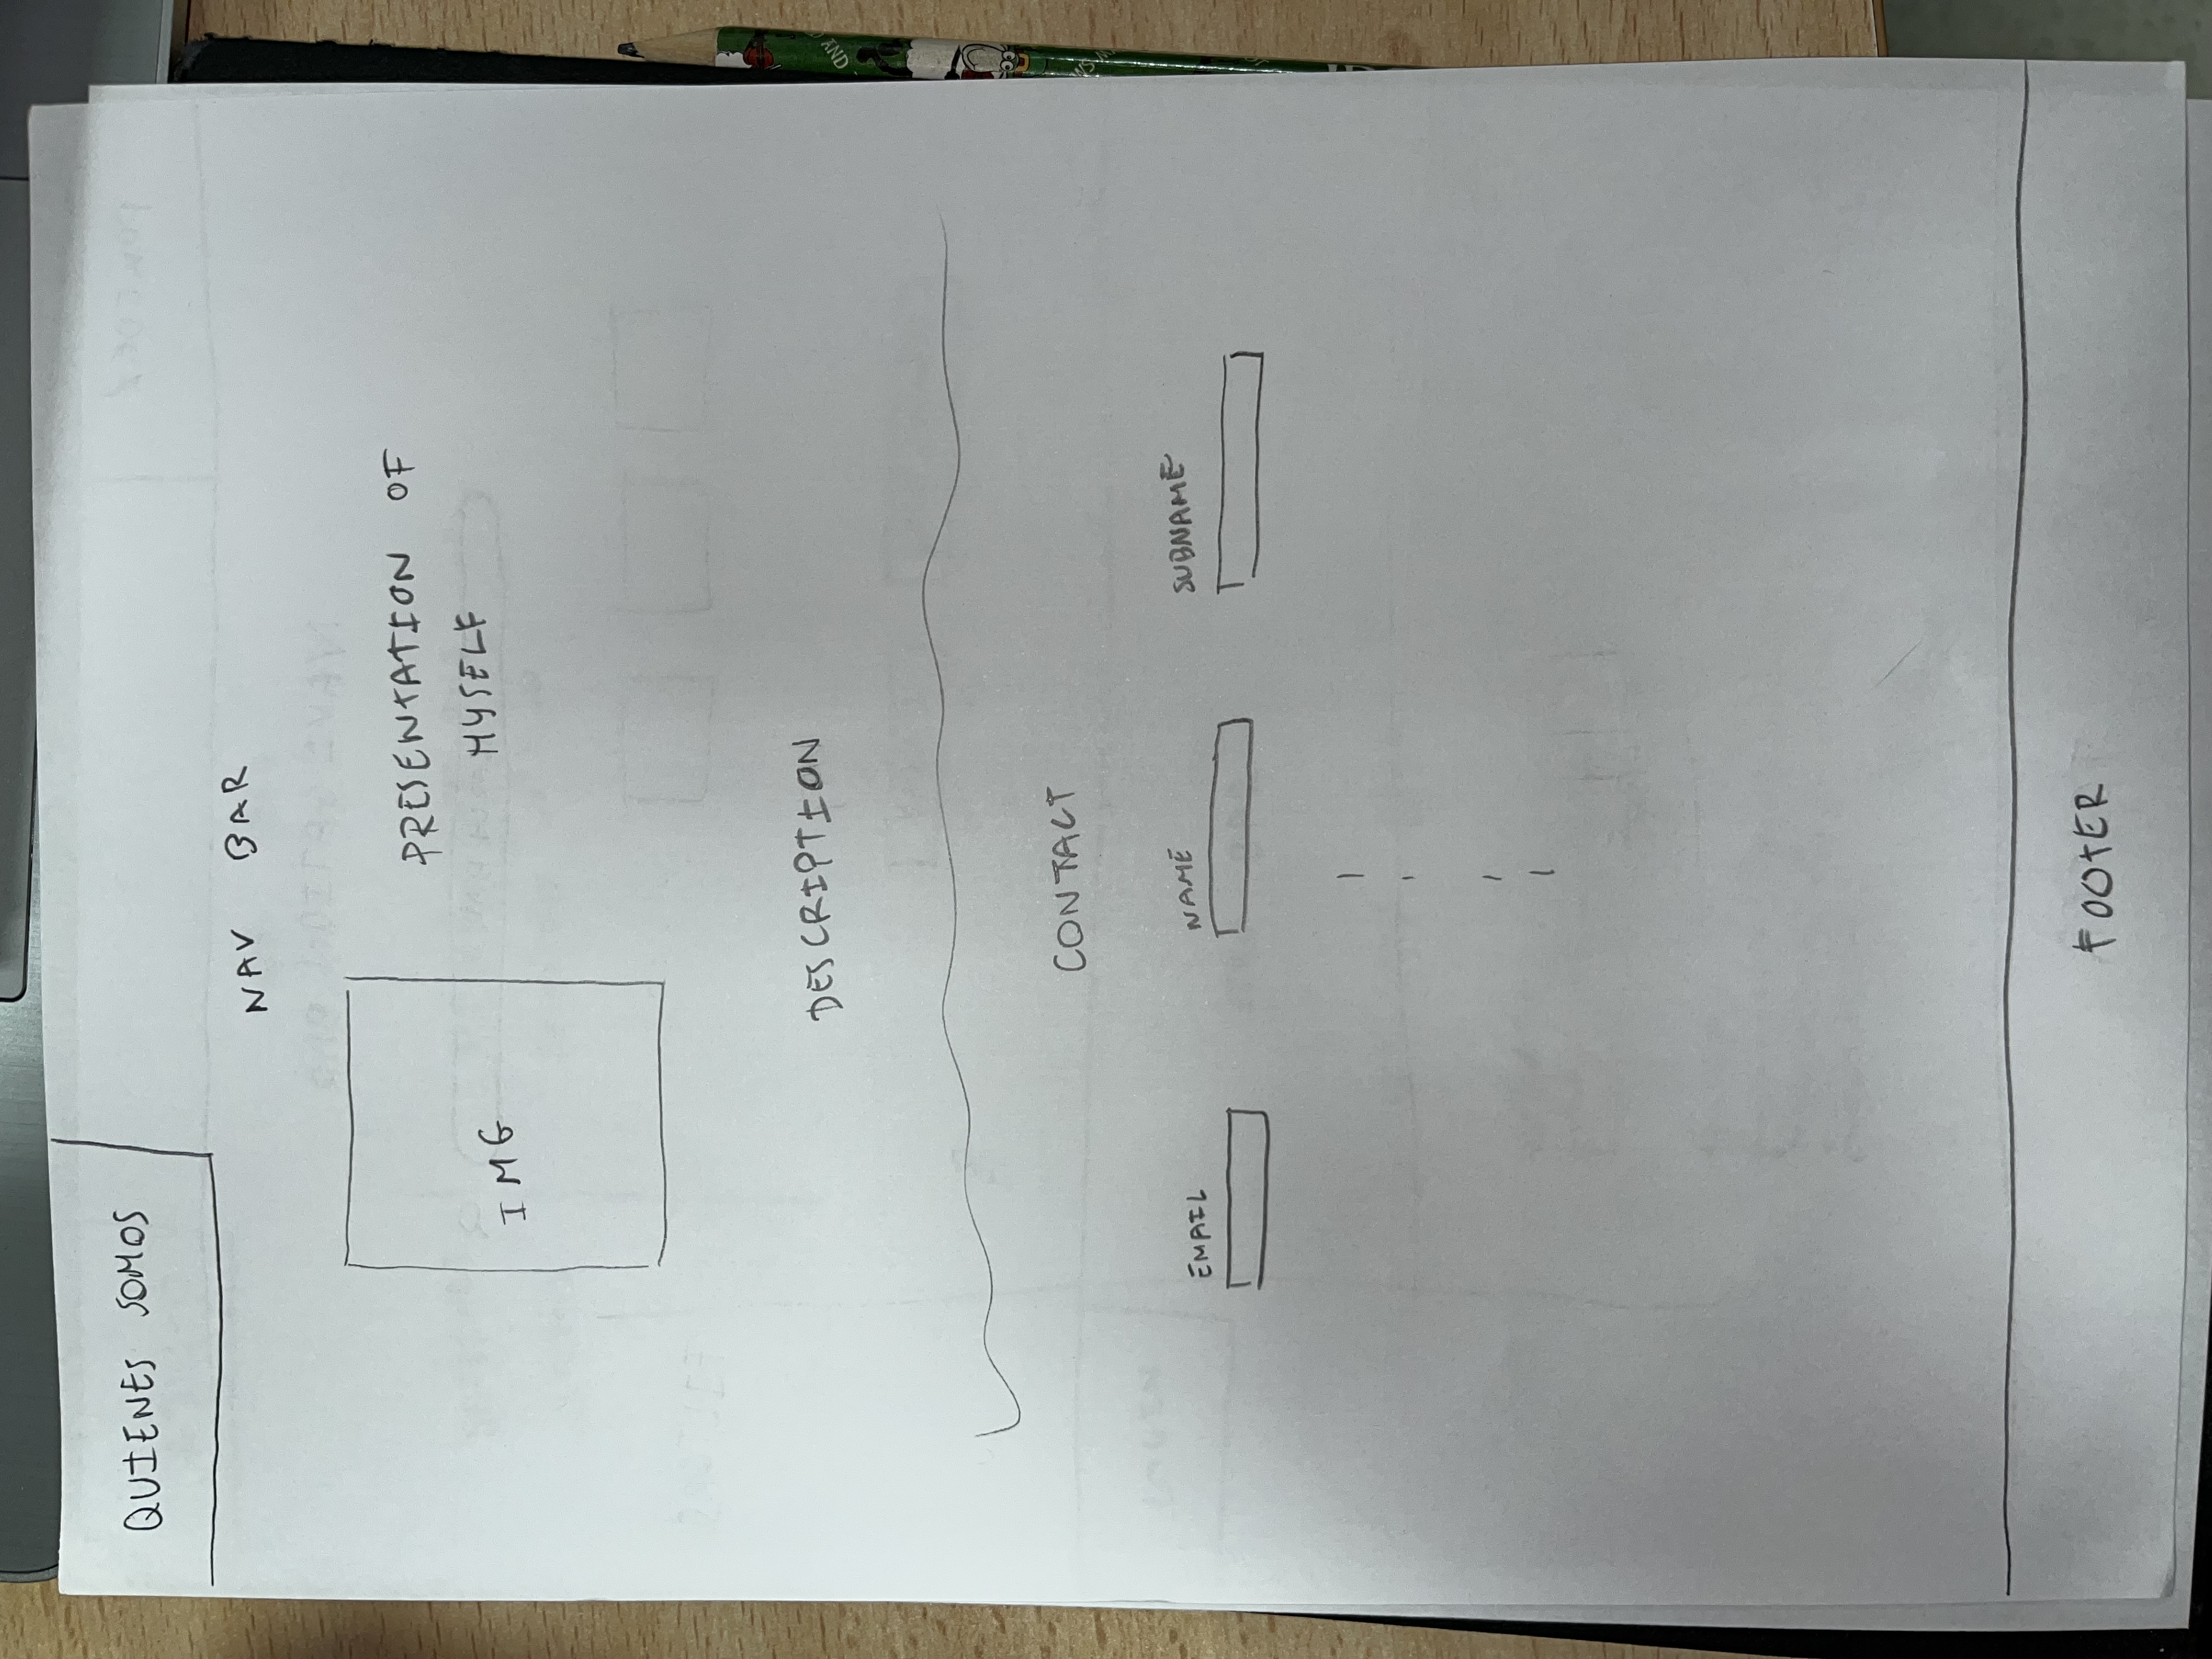 QUIENES SOMOS
NAV BAR
PRESENTATION OF
MYSELF
IMG
DESCRIPTION
CONTACT
EMAIL NAME SUBNAME
FOOTER